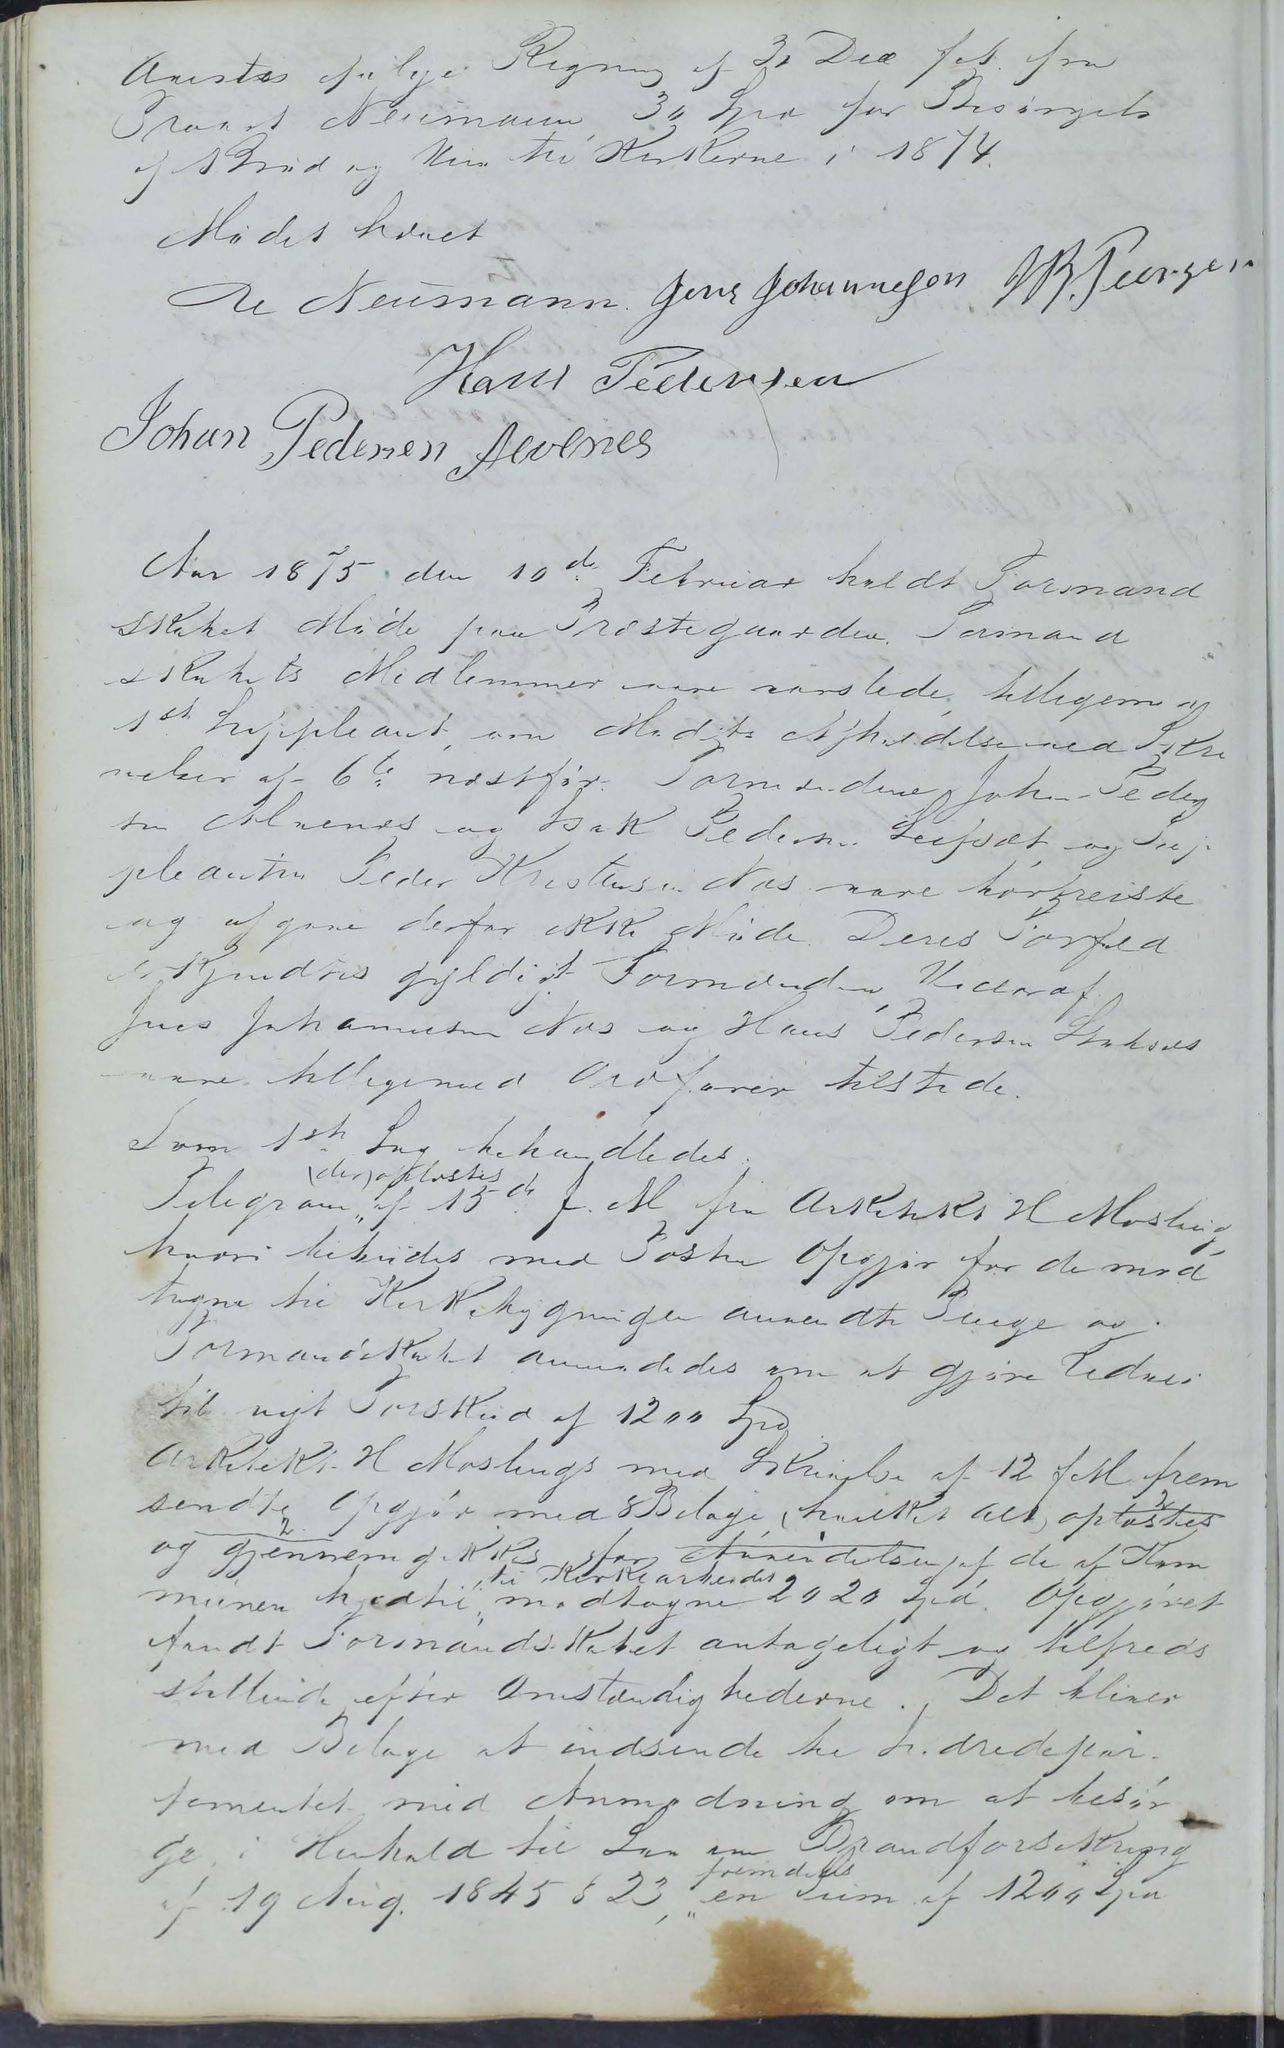 Anvistes ifølge Regning af 31 Dec f.A. fra
Provst Neumann 30 Spd for Besørgelse
af Brød og Vin til Kirkerne i 1874.
Mødet hævet
Neumann. Jens Johannesen
Hans Pedersen
Johan Pedersen Alvenes
Aar 1875 den 10de Februar holdt Formand
skabet Møde paa Præstegaarden. Formand
skabets Medlemmer vare varslede, tilligemed
1ste Suppleant, om Mødets Afholdelse ved Skri
velser af 6te næstfør. Formændene Johan Peder
sen Alvenes og Isak Pedersen og Sup
pleanten Peder Kristensen Næs vare bortreiste
og afgave derfor ikke Møde. Deres Forfald
erkjendtes gyldigt. Formændene
Jens Johannesen Næs og Hans Pedersen
vare tilligemed Ordfører tilstede.
Som 1ste Sag behandledes:
(der) oplæstes
Telegram, af 15de f. M. fra Arkitekt H Mosling
hvori bebudes med Posten Opgjør for de mod
tagne til Kirkebygningen anvendte Penge og
Formandskabet anmodedes om at gjøre
til nyt Forskud af 1200 Spd
Arkitekt H Moslings med Skrivelse af 12 f.M. frem
sendte Opgjør med 8 Bilage (hvilket Alt) oplæstes
og gjennemgikkes, for Anvendelsen af de af Kom
til Kirkearbeidet
munen hertil, modtagne 2020 Spd. Opgjøret
fandt Formandskabet antageligt og tilfreds
stillende efter Omstændighederne. Det bliver
med Bilage at indsende til
tementet med Anmodning om at besør
ge i Henhold til Lov om Brandforsikring
fremdeles
af 19 Aug. 1845 § 23, en Sum af 1200 Spd